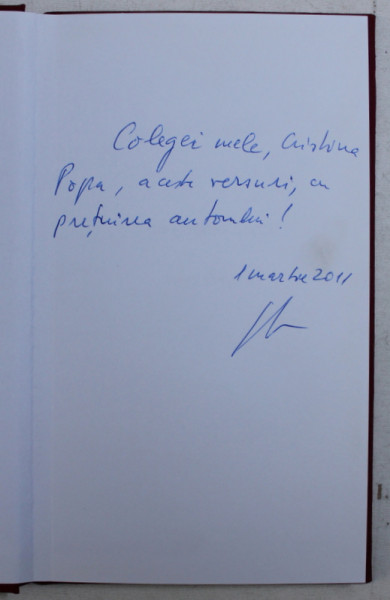 Colegei mele, Cristina
Popa, aceste versuri, cu
prețuirea autorului!
1 martie 2011